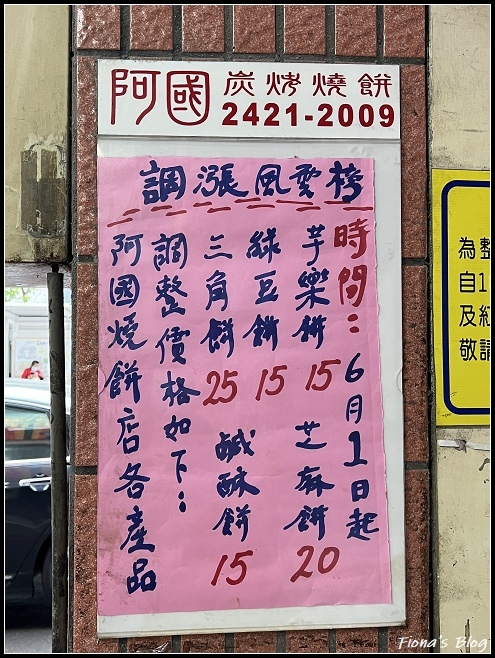 阿國 炭烤燒餅
2421-2009
調漲風雲榜
時間：6月1日起
芋樂餅 15
芝麻餅 20
綠豆餅 15
三角餅 25
鹹酥餅 15
調整價格如下：
阿國燒餅店各產品
為整
自1
及紅
敬請
Fiona's Blog